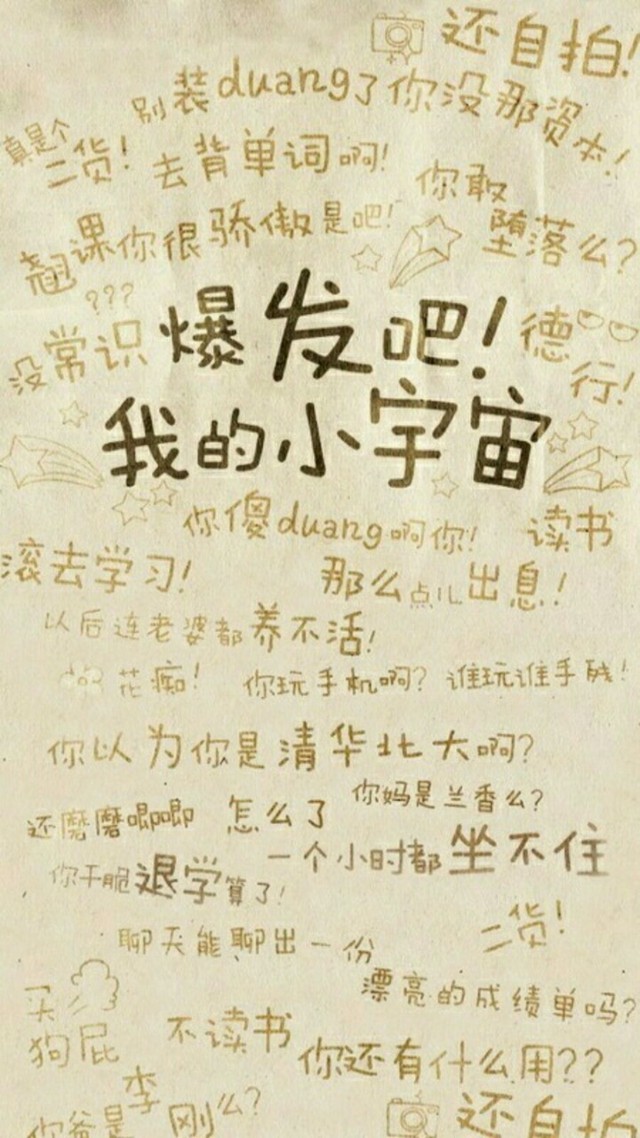 还自拍!
别装duang了你没那资本!
真是个二货!
去背单词啊!
你敢堕落么?
翘课你很骄傲是吧!
???
没常识
爆发吧!
德行!
我的小宇宙
你傻duang啊你!
读书
滚去学习!
那么点儿出息!
以后连老婆都养不活!
花痴!
你玩手机啊?谁玩谁手贱!
你以为你是清华北大啊?
你妈是兰香么?
还磨磨唧唧
怎么了
一个小时都坐不住
你干脆退学算了!
二货!
聊天能聊出一份
漂亮的成绩单吗?
买
狗屁
不读书
你还有什么用??
你爸是李刚么?
还自拍